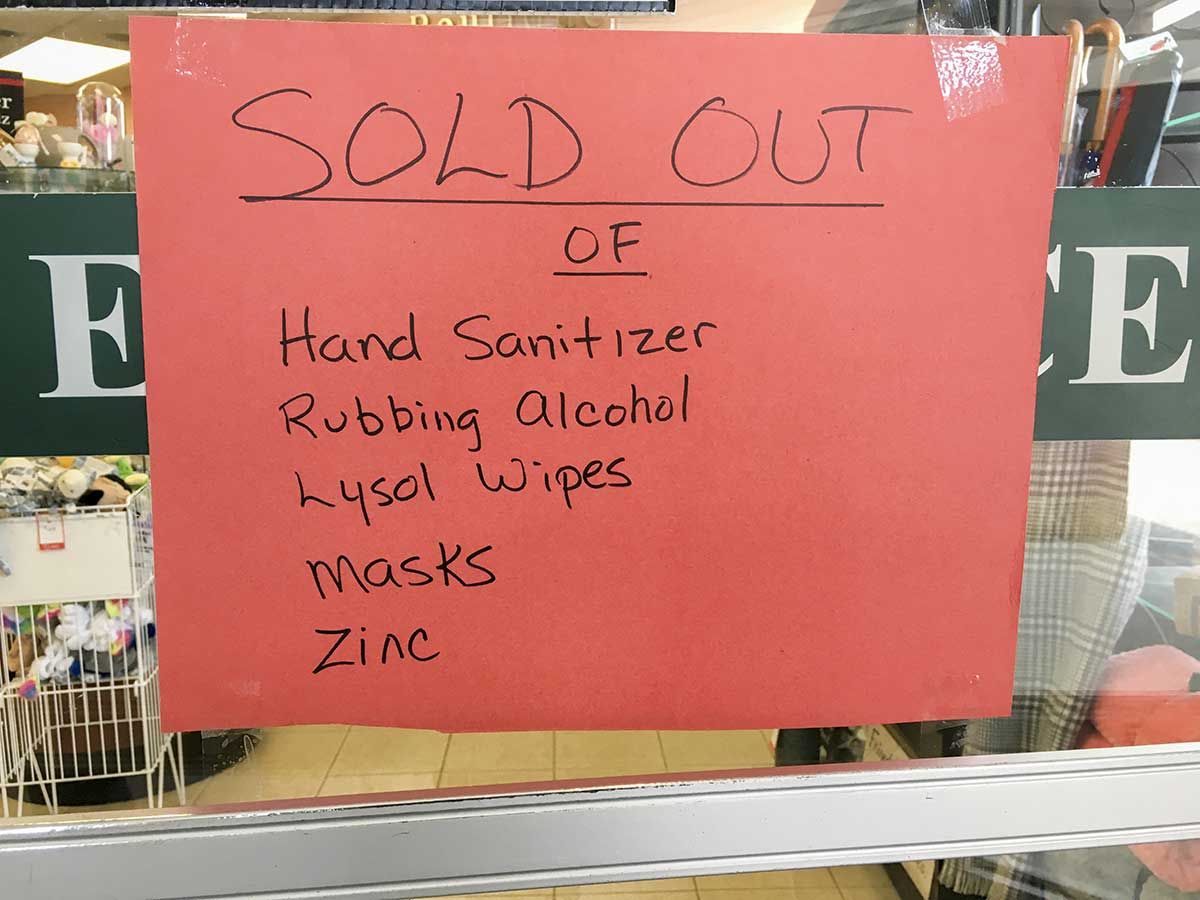 SOLD OUT
OF
Hand Sanitizer
Rubbing Alcohol
Lysol Wipes
Masks
Zinc
E
CE